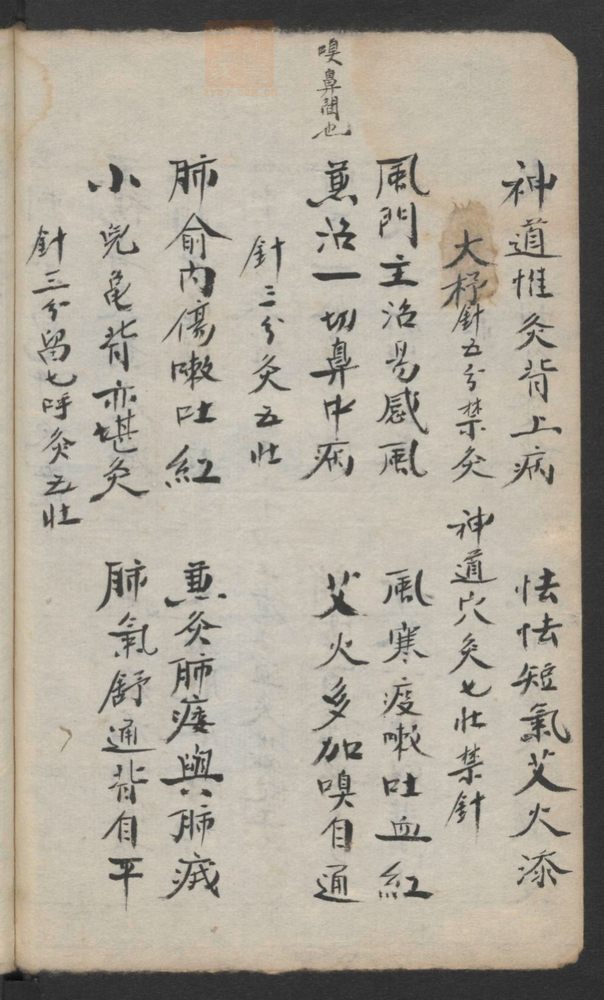 神道惟灸背上病　怯怯短氣艾火添
大杼針五分禁灸　神道穴灸七壯禁針
風門主治易感風　風寒疫嗽吐血紅
蒹治一切鼻中病　艾火多加嗅自通
嗅鼻間也
針三分灸五壯
肺俞內傷嗽吐紅　蒹灸肺痿與肺
小兒龟背亦堪灸　肺氣舒通背自平
針三分留七呼灸五壯